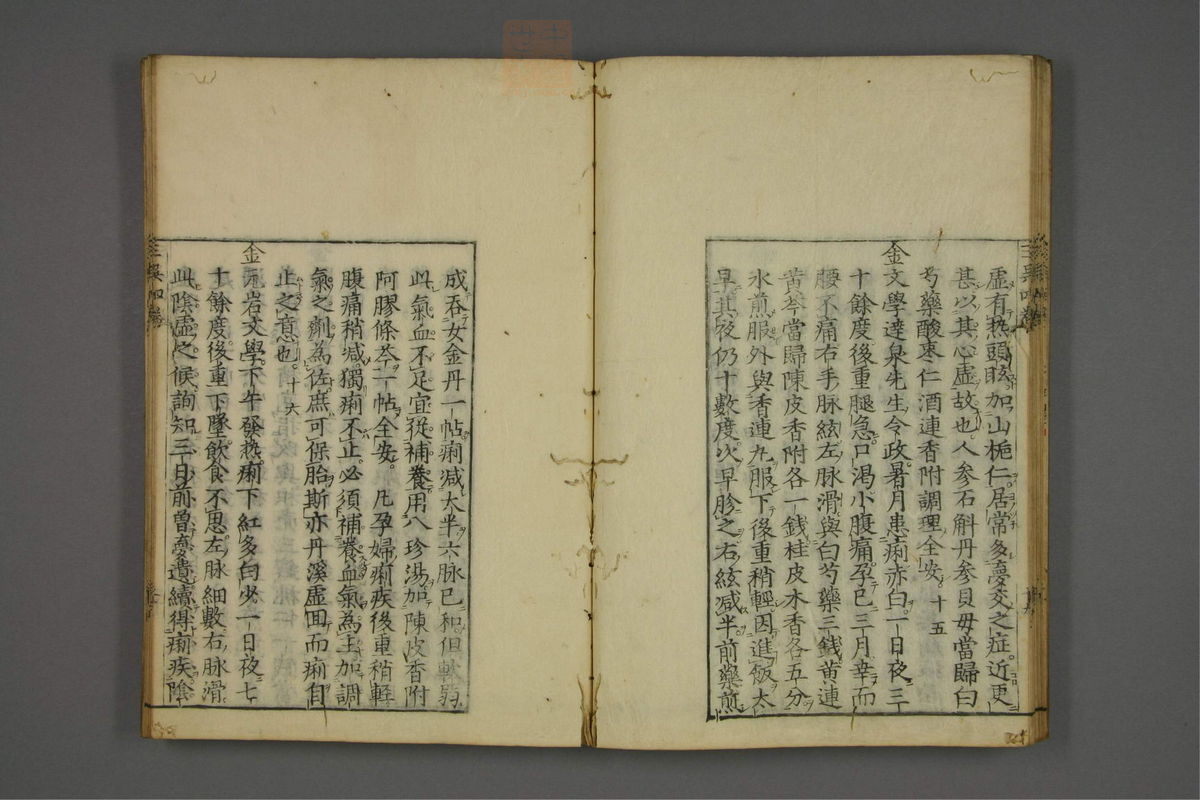 虛有热頭眩加山梔仁居常多憂交之症近更
甚以其心虛故也人参石斛丹参貝毋當歸白
芍藥酸棗仁酒連香附調理全安十五
金文學達泉先生令政暑月患痢赤白一日夜三
十餘度後重腿急口渴小腹痛孕已三月幸而
腰不痛右手脉絃左脉滑與白芍藥三錢黄連
黄芩當歸陳皮香附各一錢桂皮木香各五分
水煎服外與香連丸服下後重稍輕因進飯太
早其夜仍十數度次早診之右絃减半前藥煎
成吞女金丹一帖痢减大半六脉已和但軟弱
此氣血不足宜從補養用八珍湯加陳皮香附
阿膠條芩一帖全安凡孕婦痢疾後重稍輕
腹痛稍减獨痢不止必須補養血氣為主加調
氣之劑為佐庶可保胎斯亦丹溪虛囬而痢自
止之意也十六
金元岩文學下午發热痢下紅多白少一日夜七
十餘度後重下墜飲食不思左脉細數右脉滑
此陰虛之候詢知三日前曽憂遺續得痢疾陰